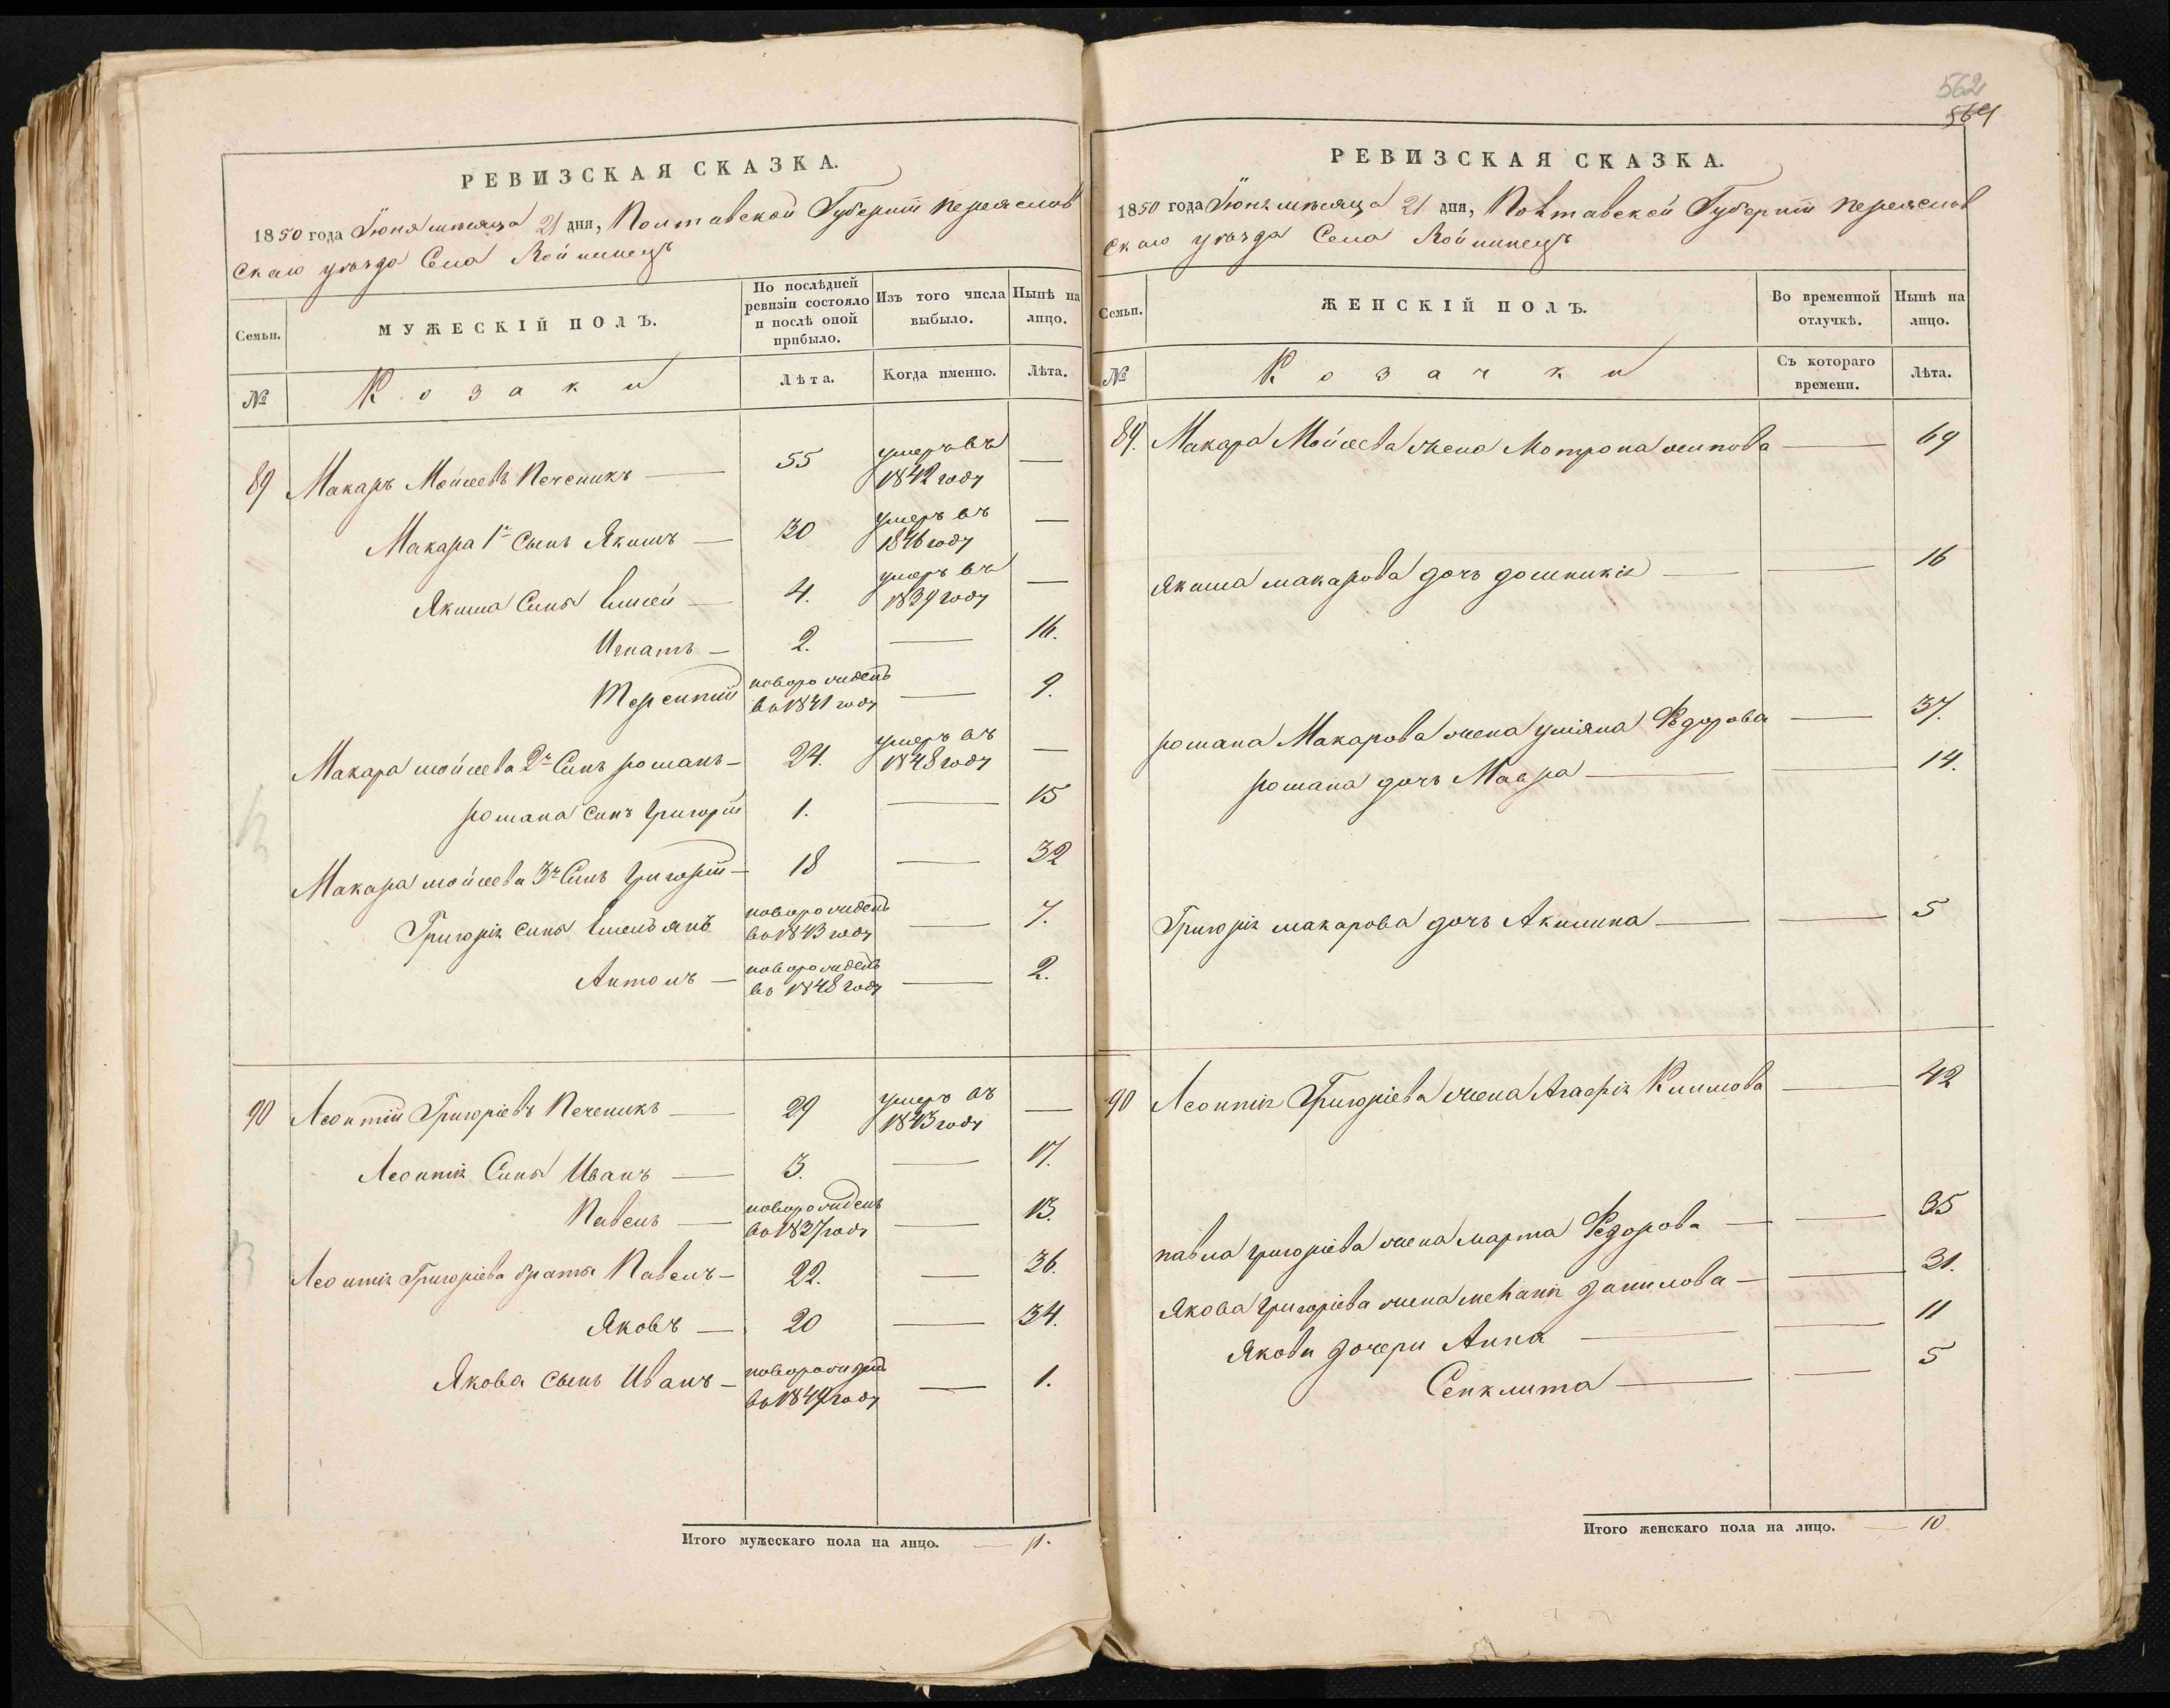 РЕВИЗСКАЯ СКАЗКА.
1850 года Іюня мѣсяца 21 дня, Полтавской Губерніи Переяслов
скаго уѣзда Села
Семьи.
МУЖЕСКІЙ ПОЛЪ.
По послѣдней ревизіи состояло и послѣ оной прибыло.
Изъ того числа выбыло.
Нынѣ на лицо.
№
Козаки
Лѣта.
Когда именно.
Лѣта.
89 Макаръ Мойсеевъ Печеникъ — 55 умеръ въ 1842 году —
Макара 1й Сынъ Якимъ — 30 умеръ въ 1846 году —
Якима Сины — 4. умеръ въ 1839 году —
Игнатъ — 2. — 16.
Терентій новорожденъ во 1841 году — 9.
Макара мойсеева 2й Синъ романъ — 24. умеръ въ 1848 году —
романа синъ григорій 1. — 15
Макара мойсеева 3й Синъ григорій — 18 — 32
Григорія сины Емельянъ новорожденъ во 1843 году — 7.
Антонъ — новорожденъ во 1848 году — 2.
90 Леонтій Григоріевъ Печеникъ — 29 умеръ въ 1843 году —
Леонтія Сины Иванъ — 3. — 17.
Павелъ — новорожденъ во 1837 году — 13.
Леонтія Григоріева браты Павелъ — 22. — 36.
Яковъ — 20 — 34.
Якова сынъ Иванъ — новорожденъ во 1849 году — 1.
Итого мужескаго пола на лицо. — 11.
562
564
РЕВИЗСКАЯ СКАЗКА.
1850 года Іюня мѣсяца 21 дня, Полтавской Губерніи Переяслов
скаго уѣзда Села
Семьи.
ЖЕНСКІЙ ПОЛЪ.
Во временной отлучкѣ.
Нынѣ на лицо.
№
Козачки
Съ котораго времени.
Лѣта.
89. Макара Мойсеева жена Мотрона осипова — 69
Якима макарова дочь домникія — — 16
романа Макарова жена уліяна Федорова — 37.
романа дочь Мавра — — 14.
Григорія макарова дочь Акилина — — 5
90 Леонтія Григоріева жена Агафія Климова — 42
павла григоріева жена марта Федорова — — 35
Якова григоріева жена меланія данилова — — 31.
Якова дочери Анна — — 11
Сенклита — — 5
Итого женскаго пола на лицо. — 10